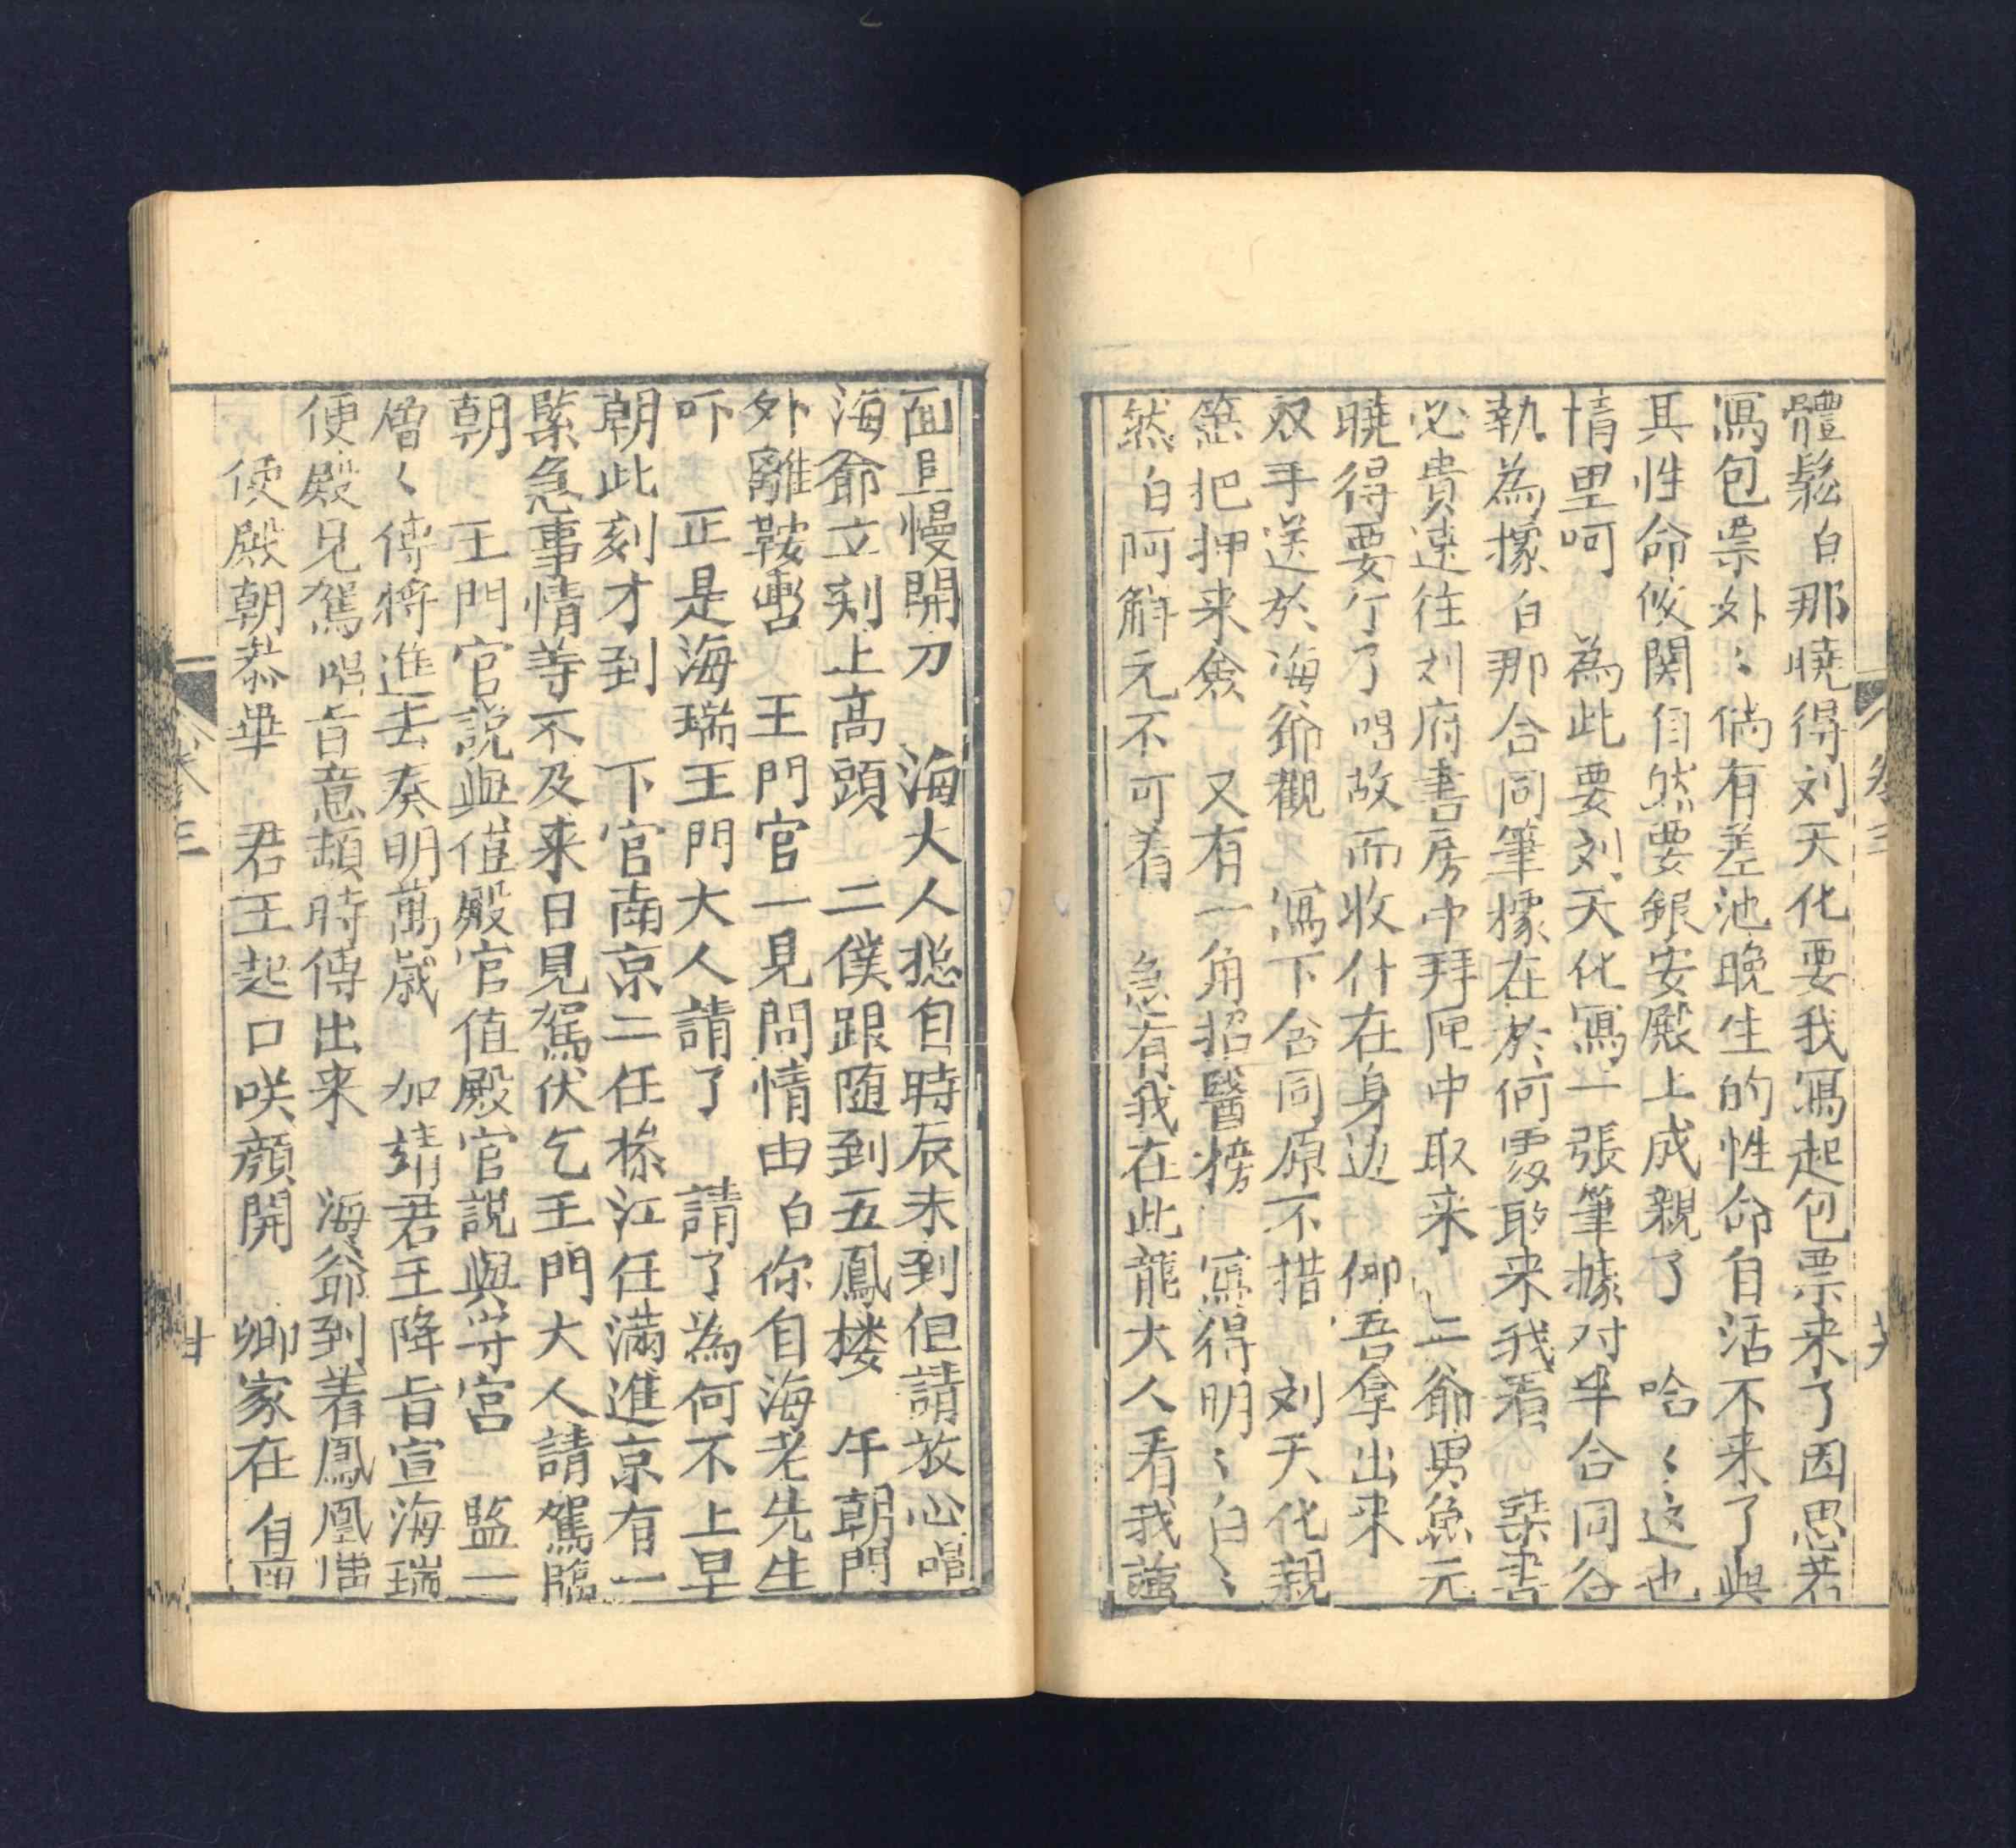 體鬆白那曉得刘天化要我寫起包票来了因思若
寫包票外〻倘有差池晚生的性命自活不来了與
其性命攸関自然要銀安殿上成親了　哈〻〻这也
情里呵　為此要刘天化寫一張筆據对半合同
執為據白那合同筆據在於何處敢来我看　琹書
必貴速往刘府書房中拜匣中取来　二爺男魚元
曉得要行了唱故而收什在身边　仰吾拿出来
双手送於海爺觀　寫下合同原不措　刘天化親
把押来僉　又有一角招醫榜　寫得明〻白〻
然白阿觧元不可着急有我在此龍大人看我
面且慢開刀　海大人想自時辰未到但請放心唱
海爺立刻上高頭　二僕跟随到五鳳楼　午朝門
外離鞍　王門官一見問情由白你自海老先生
吓　正是海瑞王門大人請了　請了為何不上早
朝此刻才到　下官南京二任操江任滿進京有一
緊急事情等不及来日見駕伏乞王門大人請駕臨
朝　王門官説與值殿官值殿官説與守宮　監一
層〻傳将進去奏明萬歲　加靖君王降旨宣海瑞
便殿見駕唱旨意頓時傳出来　海爺到着鳳凰
便殿朝恭畢　君王起口咲顏開　卿家在自
卷三
卷三
廿